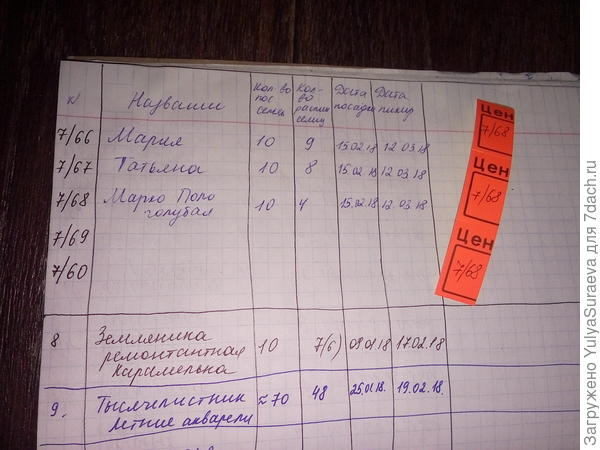 N Название Кол-во пос семян Кол-во распик сеянц Дата посадки Дата пикир
7/66 Мария 10 9 15.02.18 12.03.18
7/67 Татьяна 10 8 15.02.18 12.03.18
7/68 Марко Поло голубая 10 4 15.02.18 12.03.18
7/69
7/60
8 Земляника ремонтантная Карамелька 10 7(6) 09.01.18 17.02.18
9. Тысячелистник Летние акварели ≈70 48 25.01.18. 19.02.18.
Цен
7/68
Цен
7/68
Цен
7/68
Загружено YulyaSuraeva для 7dach.ru